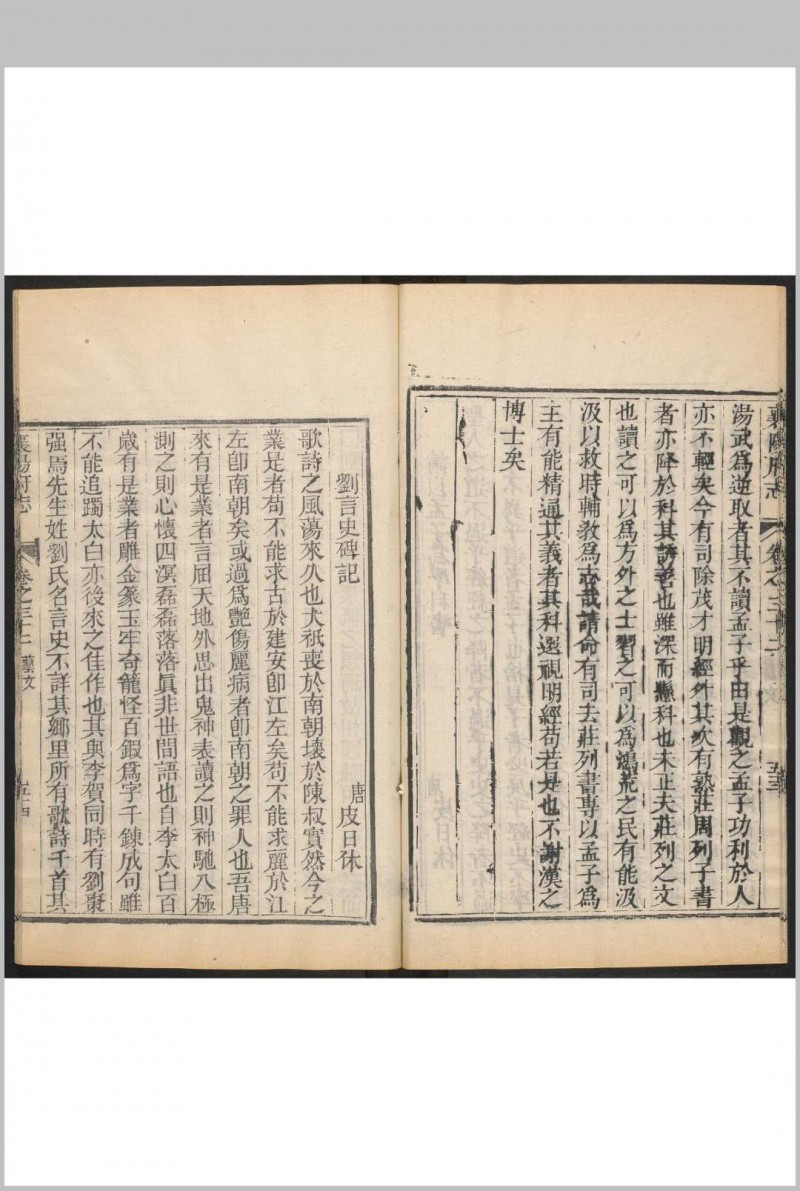 襄陽府志
卷之三十二
五三
湯武爲逆取者其不讀孟子乎由是觀之孟子功利於人
亦不輕矣今有司除茂才明經外其次有熟莊周列子書
者亦降於科其誘善也雖深而懸科也未正夫莊列之文
也讀之可以爲方外之士習之可以爲鴻荒之民有能汲
汲以救時輔教爲志哉請命有司去莊列書專以孟子爲
主有能精通其義者其科選視明經苟若是也不謝漢之
博士矣
劉言史碑記
唐皮日休
歌詩之風蕩來久也大祇喪於南朝壞於陳叔寶然今之
業是者苟不能求古於建安卽江左矣苟不能求麗於江
左卽南朝矣或過爲艷傷麗病者卽南朝之罪人也吾唐
來有是業者言屈天地外思出鬼神表讀之則神馳八極
測之則心懷四溟磊磊落落眞非世間語也自李太白百
歲有是業者雕金篆玉牢奇籠怪百鍜爲字千鍊成句雖
不能追躅太白亦後來之佳作也其與李賀同時有劉棗
强焉先生姓劉氏名言史不詳其鄉里所有歌詩千首其
襄陽府志
卷之三十二
藝文
五十四